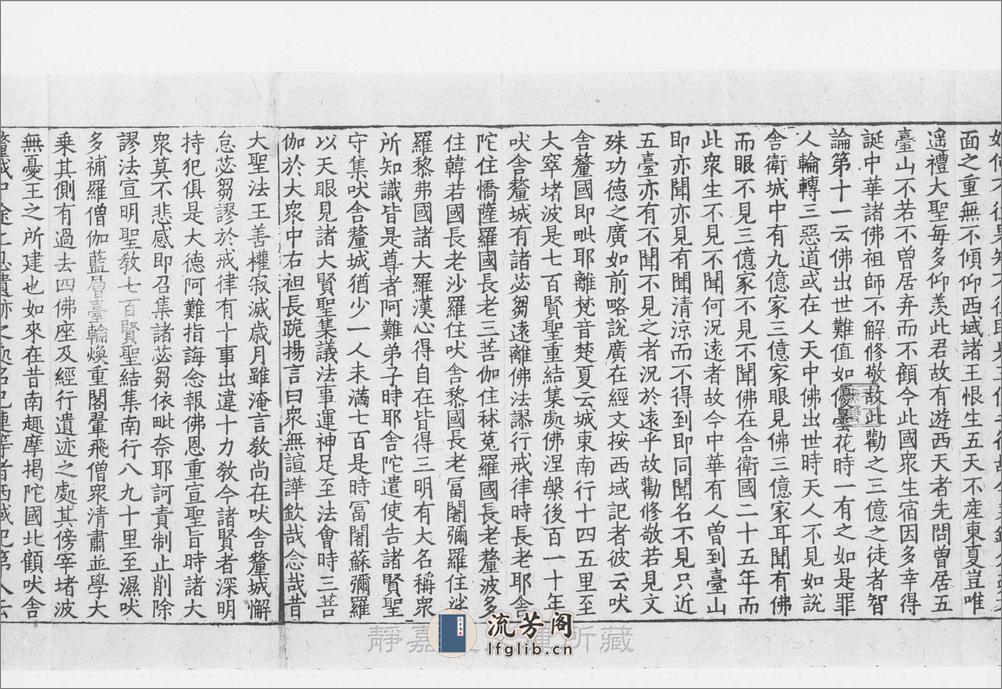 面之重無不傾仰西域諸王恨生五天不産東夏豈唯
遥禮大聖每多仰羡此君故有遊西天者先問曾居五
臺山不若不曽居弃而不顧今此國衆生宿因多幸得
誕中華諸佛祖師不解修敬故此勸之三億之徒者智
論第十一云佛出世難值如優曇花時一有之如是罪
人輪轉三惡道或在人天中佛出世時天人不見如說
舍衛城中有九億家三億家眼見佛三億家耳聞有佛
而眼不見三億家不見不聞佛在舍衛國二十五年而
此衆生不見不聞何況遠者故今中華有人曽到臺山
即亦聞亦見有聞清涼而不得到即同聞名不見只近
五臺亦有不聞不見之者況於遠乎故勸修敬若見文
殊功德之廣如前略說廣在經文按西域記者彼云吠
舍釐國即毗耶離梵音楚夏云城東南行十四五里至
大窣堵波是七百賢聖重結集處佛涅槃後百一十年
吠舍釐城有諸苾芻遠離佛法謬行戒律時長老耶舍
陀住憍薩羅國長老三菩伽住秣菟羅國長老釐波多
住韓若國長老沙羅住吠舍黎國長老冨闍彌羅住娑
羅黎弗國諸大羅漢心得自在皆得三明有大名稱衆
所知識皆是尊者阿難弟子時耶舍陀遣使告諸賢聖
守集吠舍釐城猶少一人未滿七百是時冨闍蘇彌羅
以天眼見諸大賢聖集議法事運神足至法會時三菩
伽於大衆中右袒長跪揚言曰衆無諠譁欽哉念哉昔
大聖法王善權寂滅歲月雖淹言教尚在吠舍釐城懈
怠苾芻謬於戒律有十事出違十力教今諸賢者深明
持犯俱是大德阿難指誨念報佛恩重宣聖旨時諸大
衆莫不悲感即召集諸苾芻依毗奈耶訶責制止削除
謬法宣明聖教七百賢聖結集南行八九十里至濕吠
多補羅僧伽藍層臺輪煥重閣翬飛僧衆清肅並學大
乘其側有過去四佛座及經行遺迹之處其傍窣堵波
無憂王之所建也如來在昔南趣摩揭陀國北顧吠舍
靜嘉 所藏
流芳阁
lfglib.cn